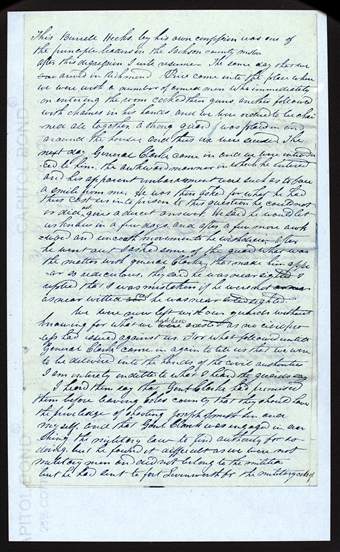 This Burrell Hicks, by his own confession was one of
the principle leaders in the Jackson county mob.
After this digression I will resume— The same day that we
arrived in Richmond Price came into the place where
we were with a number of armed men who immediately
on entering the room cocked their guns, another followed
with chains in his hands, and we were ordered to be chai
ned all together a strong guard was placed in and
around the house, and thus we were secured. The
next day General Clark came in and we were introdu
ced to him, the awkward manner in which he entered
and his apparent embarrassment were such as to force
a smile from me. He was then asked for what he had
thus cast us into prison to this question he could not
or did not give a direct answer. He said he would let
us know in a few days, and after a few more awk
ward and uncouth movements he withdrew. After
he went out I asked some of the guard what was
the matter with general Clark, that made him appe
ar so rediculous, they said he was near sighted I
replied that I was mistaken if he were not
as near witted as he was near sighted
We were now left with our guards without
knowing for what we had been arrested as no civil proc
ess had issued against us. For what followed until
General Clark came in again to tell us that we were
to be delivered into the hands of the civil authorities
I am entirely indebted to what I heard the guards say
I heard them say that Genl. Clark had promised
them before leaving Coles county that they should have
the priviledge of shooting Joseph Smith Jun and
myself. And that Genl Clark was engaged in sear
ching the military law to find authority for so
doing. but he found it difficult as we were not
military men and did not belong to the militia
but he had sent to fort Leavenworth for the military code of
CAPITOL BOND